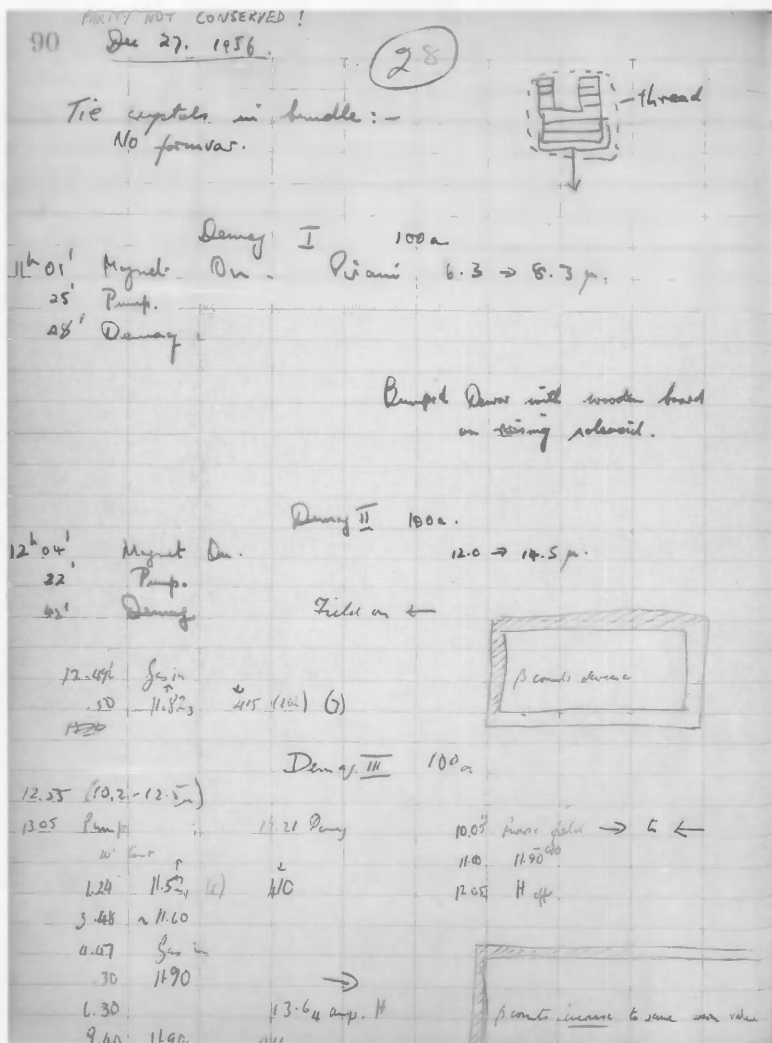 PARITY NOT CONSERVED !
90 Dec 27. 1956.
28
Tie crystals in bundle :-
No formvar.
thread
Demag I 100a
11h 01' Magnet On. Pirani 6.3 → 8.3 μ.
25' Pump.
48' Demag.
Bumped Dewar with wooden board
on rising solenoid.
Demag II 100a.
12h 04' Magnet On. 12.0 → 14.5 μ.
22' Pump.
Demag Field on ←
Gas in
.50 11.82₃ ↑
β counts decrease
Demag. III 100a
12.55 (10.2 - 12.5μ)
13.05 Pump Demag
10.05 field → to ←
11.00 11.90
1.24 ↑ ↓ 410
12.05 H off.
3.48 ~ 11.60
Gas in
.30 11.90
→
6.30 13.64 amp. H
β counts increase to same value
9.40 11.90